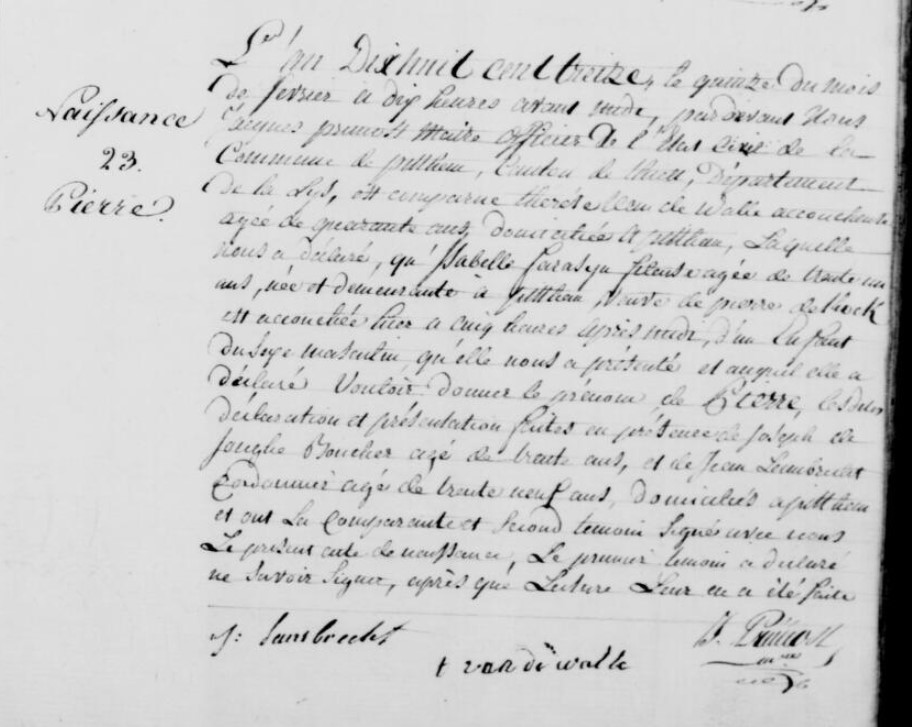 Naissance
23.
Pierre.
L'an Dixhuit cent treize, le quinze du mois
de fevrier a dix heures avant midi, pardevant Nous
Maire officier de l'Etat Civil de la
Commune de pitthem, Canton de thielt, Département
de la Lys, est comparue therése Van de Walle accoucheuse
agée de quarante ans, domiciliée à pitthem, Laquelle
nous a déclaré, qu'Isabelle farasyn fileuse agée de trente un
ans, née et demeurante à pitthem, veuve de pierre
est accouchée hier a cinq heures après midi, d'un Enfant
du sexe masculin, qu'elle nous a présenté et auquel elle a
déclaré Vouloir donner le prénom de Pierre, les dites
déclaration et présentation faites en présence de joseph de
jonghe Boucher agé de trente ans, et de Jean Lambrecht
Cordonnier agé de trente neuf ans, domiciliés a pitthem
et ont la Comparante et Second temoin Signé avec nous
Le présent acte de naissance, Le premier temoin a declaré
ne Savoir Signer, après que Lecture Leur en a été faite
j: lambrecht
t van de walle